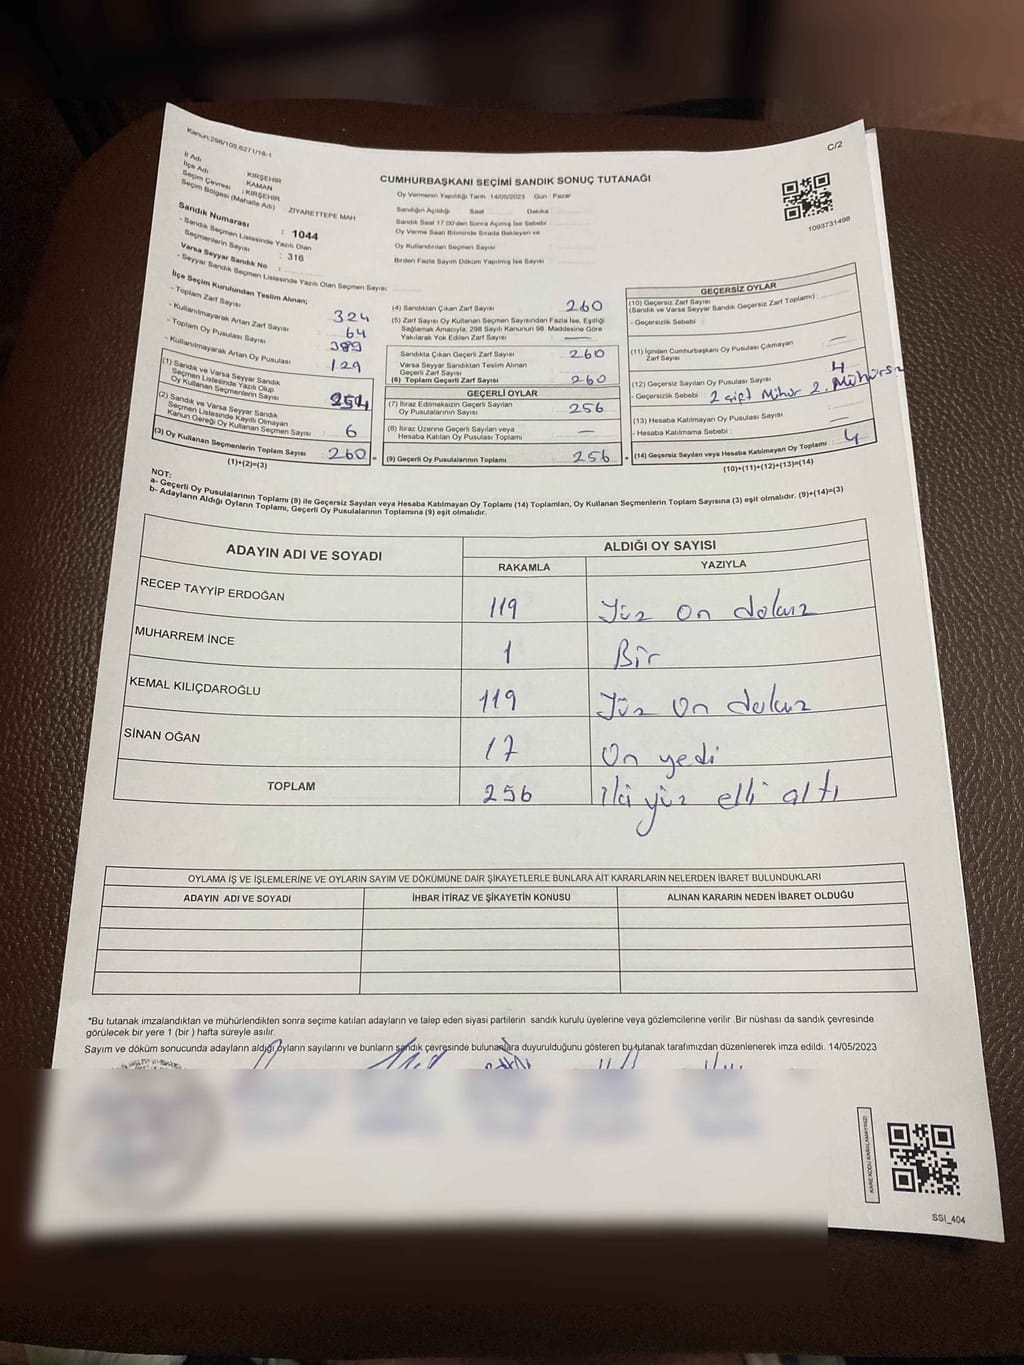 Kanun:298/105,6271/16-1
C/2
İl Adı : KIRŞEHİR
İlçe Adı : KAMAN
Seçim Çevresi : KIRŞEHİR
Seçim Bölgesi (Mahalle Adı) ZİYARETTEPE MAH
Sandık Numarası : 1044
- Sandık Seçmen Listesinde Yazılı Olan
Seçmenlerin Sayısı : 316
Varsa Seyyar Sandık No :
- Seyyar Sandık Seçmen Listesinde Yazılı Olan Seçmen Sayısı:
CUMHURBAŞKANI SEÇİMİ SANDIK SONUÇ TUTANAĞI
Oy Vermenin Yapıldığı Tarih :14/05/2023 Gün : Pazar
Sandığın Açıldığı Saat Dakika
Sandık Saat 17.00'den Sonra Açılmış İse Sebebi
Oy Verme Saati Bitiminde Sırada Bekleyen ve
Oy Kullandırılan Seçmen Sayısı
Birden Fazla Sayım Döküm Yapılmış İse Sayısı
1093731498
İlçe Seçim Kurulundan Teslim Alınan;
- Toplam Zarf Sayısı 324
- Kullanılmayarak Artan Zarf Sayısı 64
- Toplam Oy Pusulası Sayısı 389
- Kullanılmayarak Artan Oy Pusulası 129
(1) Sandık ve Varsa Seyyar Sandık
Seçmen Listesinde Yazılı Olup
Oy Kullanan Seçmenlerin Sayısı 254
(2) Sandık ve Varsa Seyyar Sandık
Seçmen Listesinde Kayıtlı Olmayan
Kanun Gereği Oy Kullanan Seçmen Sayısı 6
(3) Oy Kullanan Seçmenlerin Toplam Sayısı 260 =
(1)+(2)=(3)
(4) Sandıktan Çıkan Zarf Sayısı 260
(5) Zarf Sayısı Oy Kullanan Seçmen Sayısından Fazla İse, Eşitliği
Sağlamak Amacıyla; 298 Sayılı Kanunun 98. Maddesine Göre
Yakılarak Yok Edilen Zarf Sayısı —
Sandıkta Çıkan Geçerli Zarf Sayısı 260
Varsa Seyyar Sandıktan Teslim Alınan
Geçerli Zarf Sayısı
(6) Toplam Geçerli Zarf Sayısı 260
GEÇERLİ OYLAR
(7) İtiraz Edilmeksizin Geçerli Sayılan
Oy Pusulalarının Sayısı 256
(8) İtiraz Üzerine Geçerli Sayılan veya
Hesaba Katılan Oy Pusulası Toplamı —
(9) Geçerli Oy Pusulalarının Toplamı 256 +
GEÇERSİZ OYLAR
(10) Geçersiz Zarf Sayısı
(Sandık ve Varsa Seyyar Sandık Geçersiz Zarf Toplamı) :
- Geçersizlik Sebebi :
(11) İçinden Cumhurbaşkanı Oy Pusulası Çıkmayan
Zarf Sayısı —
(12) Geçersiz Sayılan Oy Pusulası Sayısı 4
- Geçersizlik Sebebi : 2 çift Mühür 2. Mühürsüz
(13) Hesaba Katılmayan Oy Pusulası Sayısı —
- Hesaba Katılmama Sebebi :
(14) Geçersiz Sayılan veya Hesaba Katılmayan Oy Toplamı : 4
(10)+(11)+(12)+(13)=(14)
NOT:
a- Geçerli Oy Pusulalarının Toplamı (9) ile Geçersiz Sayılan veya Hesaba Katılmayan Oy Toplamı (14) Toplamları, Oy Kullanan Seçmenlerin Toplam Sayısına (3) eşit olmalıdır. (9)+(14)=(3)
b- Adayların Aldığı Oyların Toplamı, Geçerli Oy Pusulalarının Toplamına (9) eşit olmalıdır.
ADAYIN ADI VE SOYADI ALDIĞI OY SAYISI
RAKAMLA YAZIYLA
RECEP TAYYİP ERDOĞAN 119 Yüz on dokuz
MUHARREM İNCE 1 Bir
KEMAL KILIÇDAROĞLU 119 Yüz on dokuz
SİNAN OĞAN 17 On yedi
TOPLAM 256 İki yüz elli altı
OYLAMA İŞ VE İŞLEMLERİNE VE OYLARIN SAYIM VE DÖKÜMÜNE DAİR ŞİKAYETLERLE BUNLARA AİT KARARLARIN NELERDEN İBARET BULUNDUKLARI
ADAYIN ADI VE SOYADI İHBAR İTİRAZ VE ŞİKAYETİN KONUSU ALINAN KARARIN NEDEN İBARET OLDUĞU
*Bu tutanak imzalandıktan ve mühürlendikten sonra seçime katılan adayların ve talep eden siyasi partilerin sandık kurulu üyelerine veya gözlemcilerine verilir .Bir nüshası da sandık çevresinde
görülecek bir yere 1 (bir ) hafta süreyle asılır.
Sayım ve döküm sonucunda adayların aldığı oyların sayılarını ve bunların sandık çevresinde bulunanlara duyurulduğunu gösteren bu tutanak tarafımızdan düzenlenerek imza edildi. 14/05/2023
KARE KODU KARALAMAYINIZ!
SSI_404